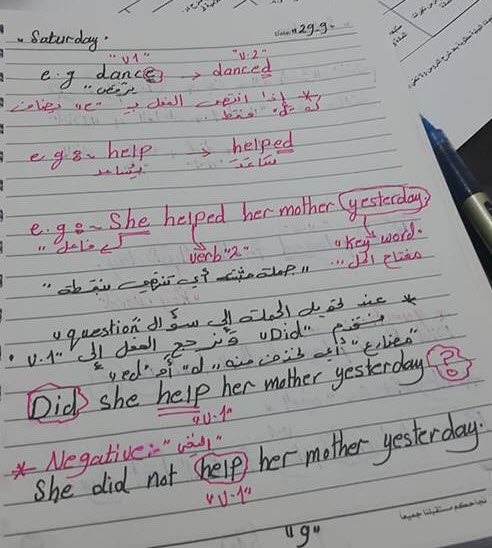 "Saturday. Date: "29.9"
"V1" "V.2"
e.g dance → danced
يرقص "
* إذا انتهى الفعل بـ "e" يضاف
له "d" فقط.
e.g :~ help → helped
يُساعد سَاعَدَ
e.g :~ She helped her mother yesterday
فاعل " verb "2" "Key word"
" جملة مثبتة أي تنتهي بنقطة " مفتاح الحل...
* عند تحويل الجملة إلى سؤال "question"
نستخدم "Did" ونرجع الفعل إلى "V.1"
"مضارع" أي نحذف منه "d" أو "ed"
Did she help her mother yesterday ?
"V-1"
* Negative:- "النفي"
She did not help her mother yesterday.
"V-1"
نجاحكم مستقبلنا جميعا
"9"